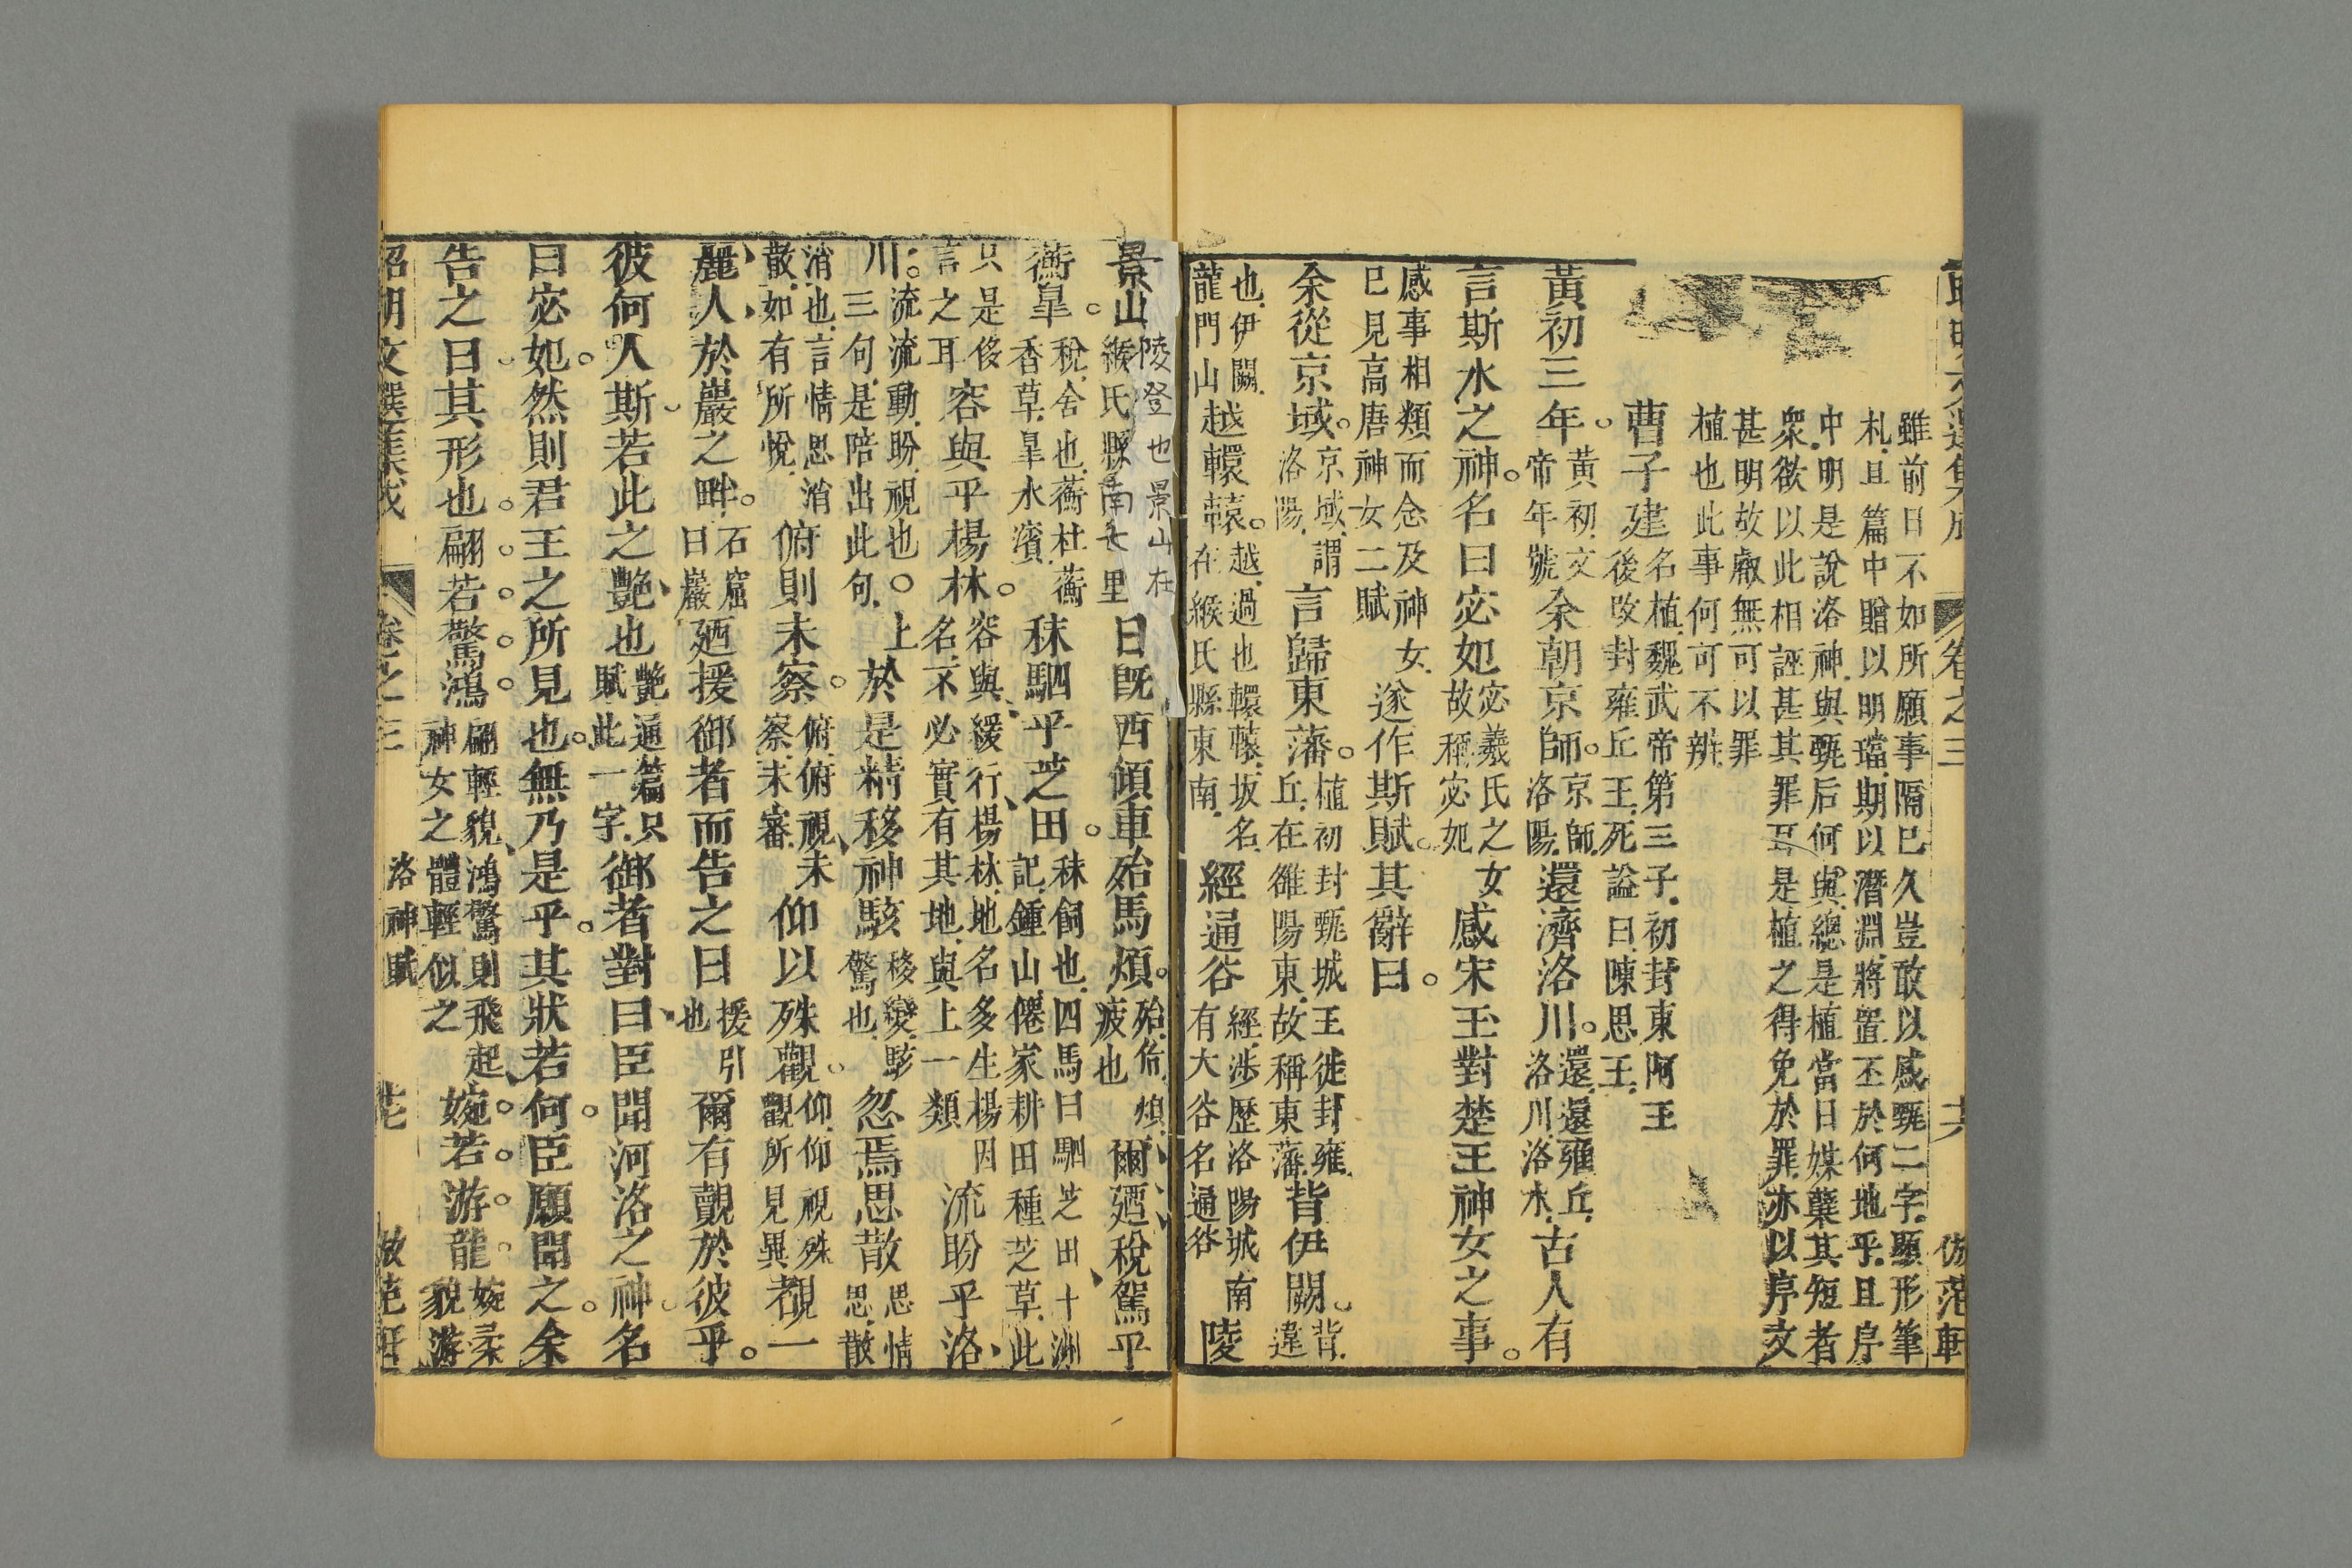 卷之三
倣范軒
雖前日不如所願事隔已久豈敢以感甄二字顯形筆
札且篇中贈以明璫期以潛淵將置丕於何地乎且序
中明是說洛神與甄后何與總是植當日媒糵其短者
衆欲以此相誣甚其罪耳是植之得免於罪亦以序文
甚明故厰無可以罪
植也此事何可不辨
曹子建名植魏武帝第三子初封東阿王
後改封雍丘王死謚曰陳思王
黃初三年黃初文
帝年號余朝京師京師
洛陽還濟洛川還還雍丘
洛川洛水古人有
言斯水之神名曰宓妃宓羲氏之女
故稱宓妃感宋玉對楚王神女之事
感事相類而念及神女
已見高唐神女二賦遂作斯賦其辭曰
余從京域京域謂
洛陽言歸東藩植初封甄城王徙封雍
丘在雒陽東故稱東藩背伊闕背違
也伊闕
龍門山越轘轅越過也轘轅坂名
在緱氏縣東南經通谷經涉歷洛陽城南
有大谷名通谷陵
景山陵登也景山在
緱氏縣南七里日既西傾車殆馬煩殆倦煩
疲也爾廼稅駕乎
蘅臯稅舍也蘅杜蘅
香草臯水濱秣駟乎芝田秣飼也四馬曰駟芝田十洲
記鍾山僊家耕田種芝草此
只是侈
言之耳容與乎楊林容與緩行楊林地名多生楊因
名不必實有其地與上一類流盼乎洛
川流流動盼視也上
三句是陪出此句於是精移神駭移變駭
驚也忽焉思散思情
思散
消也言情思消
散如有所悅俯則未察俯俯視未
察未審仰以殊觀仰仰視殊
觀所見異覩一
麗人於巖之畔石窟
曰巖廼援御者而告之曰援引
也爾有覿於彼乎
彼何人斯若此之艷也艷通篇只
賦此一字御者對曰臣聞河洛之神名
曰宓妃然則君王之所見也無乃是乎其狀若何臣願聞之余
告之曰其形也翩若驚鴻翩輕貌鴻驚則飛起
神女之體輕似之婉若游龍婉柔
貌游
昭明文選集成
卷之三
洛神賦